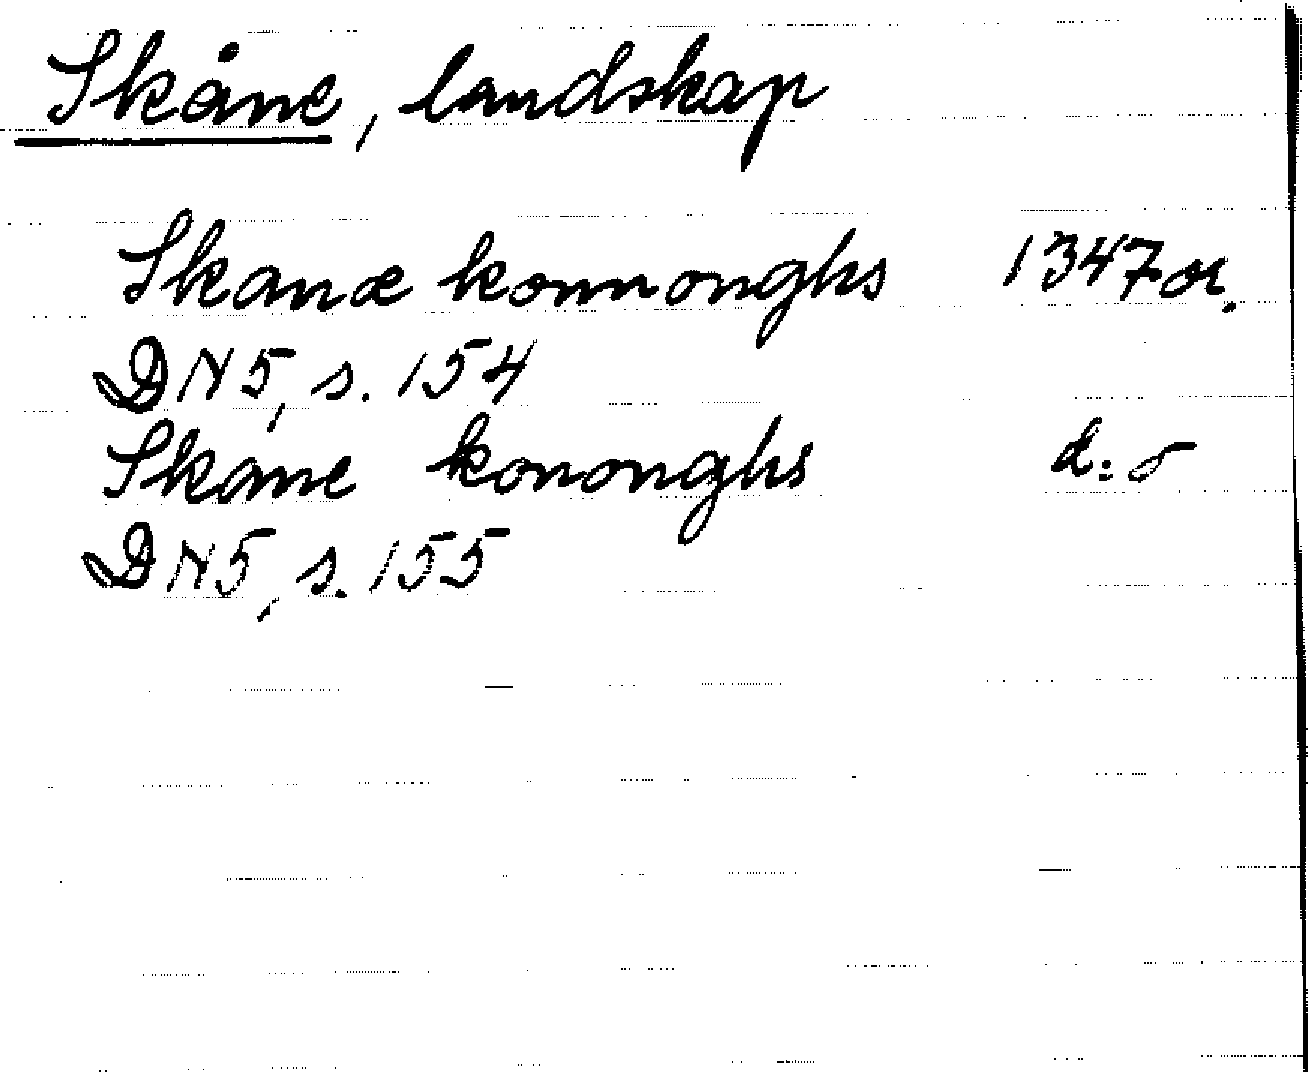 Skåne, landskap
Skanæ konnonghs 1347 or.
DN 5, s. 154
Skane kononghs d:o
DN 5, s. 155